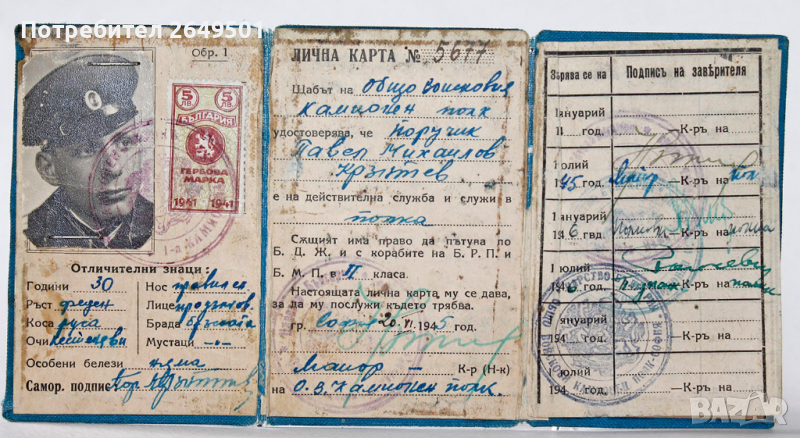 Потребител 2649501
Обр. 1
5 ЛВ. 5 ЛВ.
БЪЛГАРИЯ
ГЕРБОВА
МАРКА
1941 1941
Отличителни знаци:
Години 30
Ръст среден
Коса руса
Очи
Особени белези няма
Самор. подпис Пор.
Нос правилен
Лице продълговато
Брада бръсната
Мустаци -"-
ЛИЧНА КАРТА № 5677
Щабът на Общо войсковия
Камионен полк
удостоверява, че Поручик
Павел Михаилов
Кръстев
е на действителна служба и служи в
полка
Същият има право да пътува по
Б. Д. Ж. и с корабите на Б. Р. П. и
Б. М. П. в II класа.
Настоящата лична карта му се дава,
за да му послужи където трябва.
гр. София 20. VI. 1945 год.
Майор К-р (Н-к)
на О. В. Камионен полк.
Заверява се на Подпис на заверителя
1 януарий
194 год. К-ръ на
1 юлий
1945 год. Майор К-ръ на полка
1 януарий
1946 год. К-ръ на полка
1 юлий
1946 год. К-ръ на полка
1 януарий
194 год. К-ръ на
1 юлий
194 год. К-ръ на
BAZAR